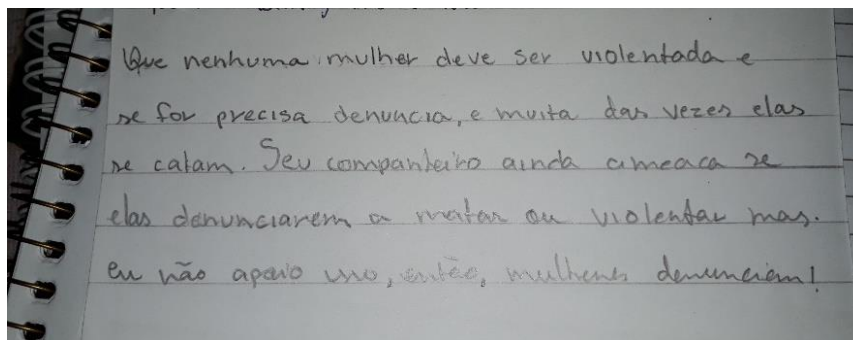 Que nenhuma mulher deve ser violentada e
se for precisa denuncia, e muita das vezes elas
se calam. Seu companheiro ainda ameaca se
elas denunciarem a matar ou violentar mas.
eu não apoio isso, então, mulheres denunciem!